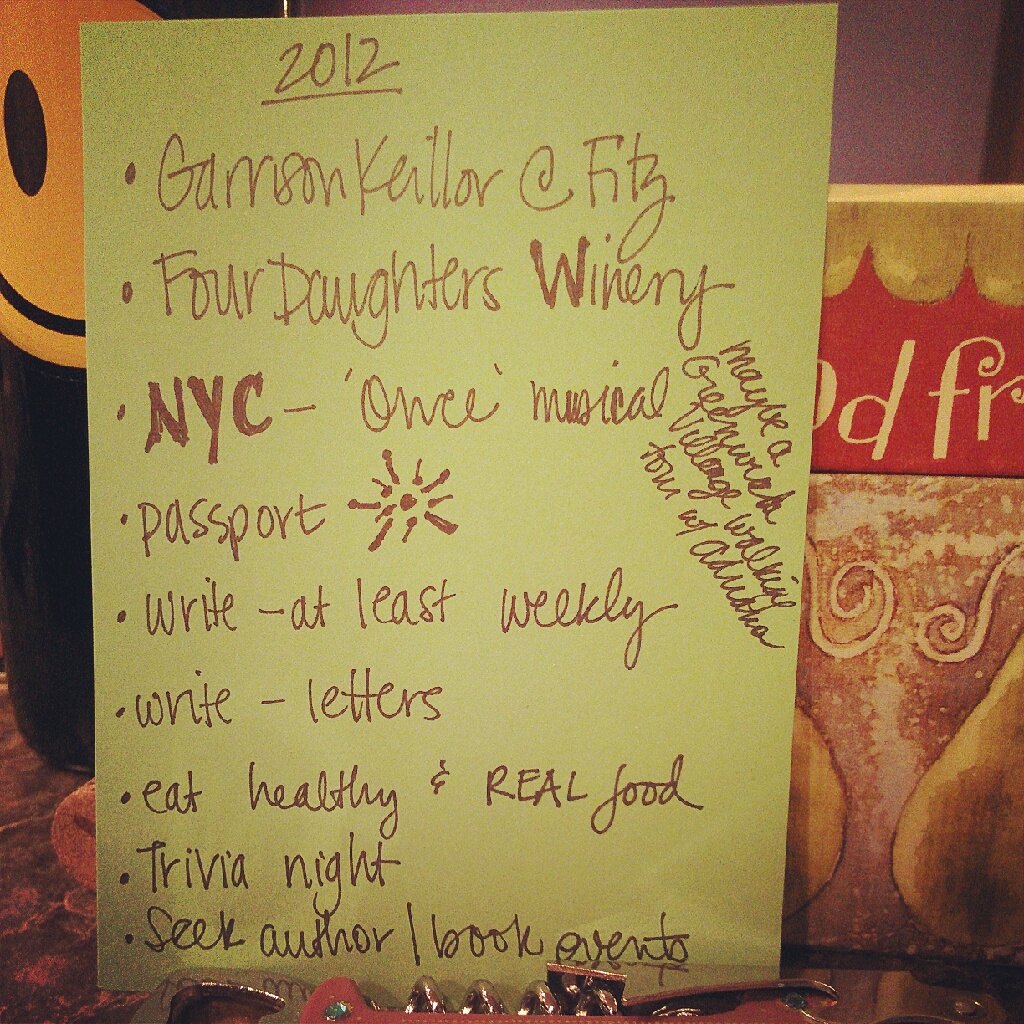 2012
• Garrison Keillor @ Fitz
• Four Daughters Winery
• NYC – 'Once' musical
maybe a
Greenwich
Village walking
tour w/
• passport
• write – at least weekly
• write – letters
• eat healthy & REAL food
• Trivia night
• Seek author / book events
od fr